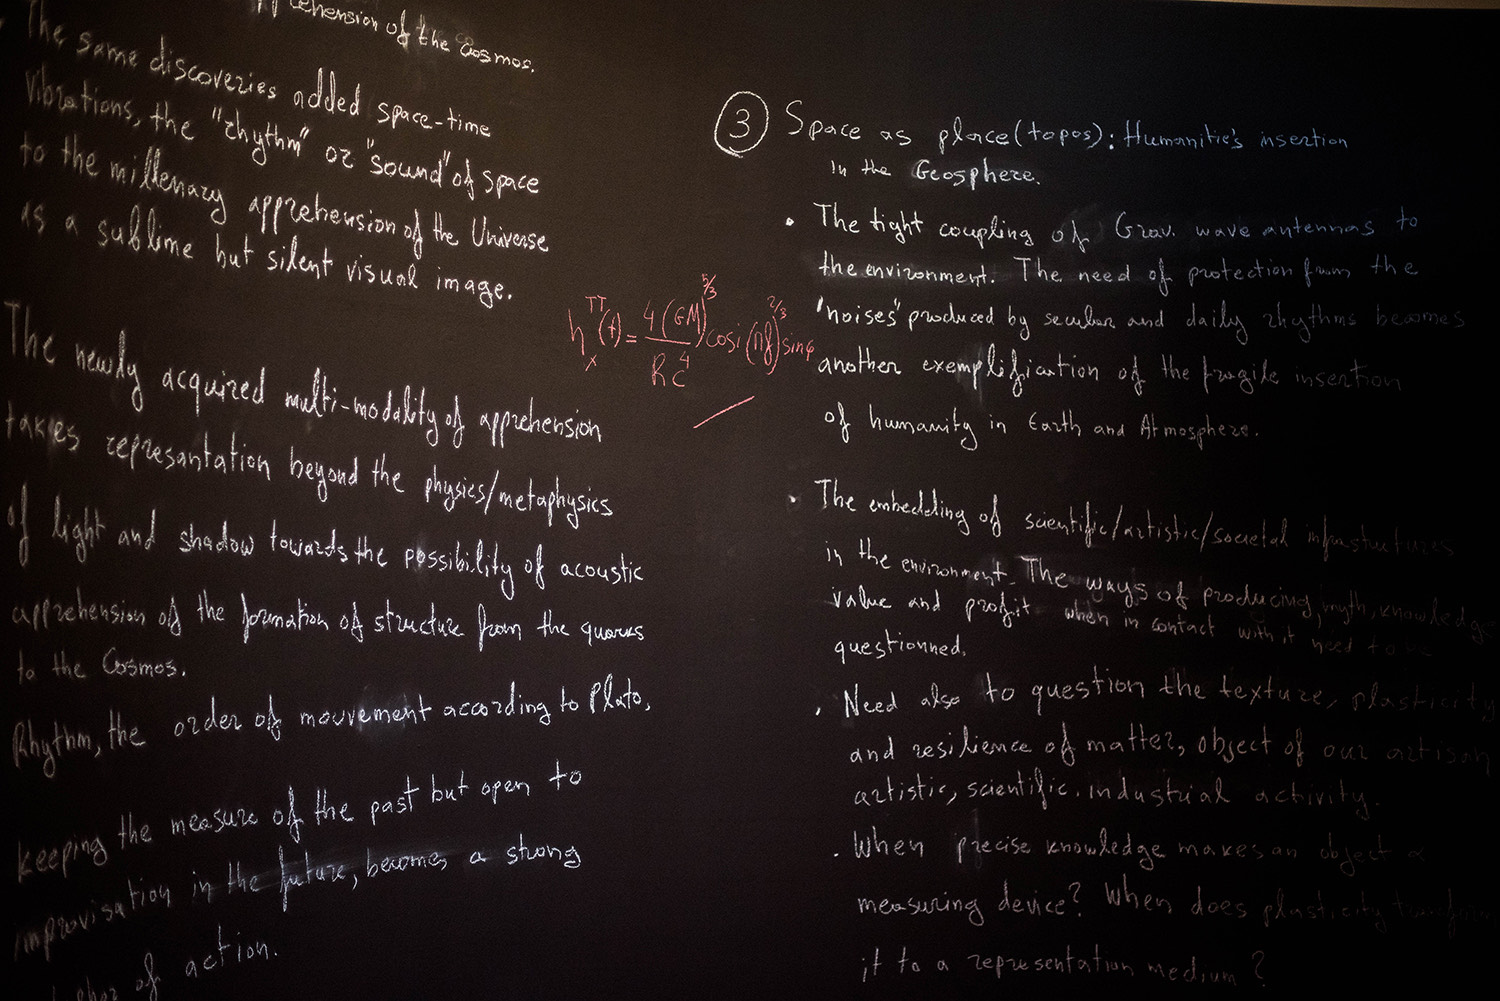 apprehension of the Cosmos.
The same discoveries added space-time
vibrations, the "rhythm" or "sound" of space
to the millenary apprehension of the Universe
as a sublime but silent visual image.
The newly acquired multi-modality of apprehension
takes represantation beyond the physics/metaphysics
of light and shadow towards the possibility of acoustic
apprehension of the formation of structure from the quarks
to the Cosmos.
Rhythm, the order of mouvement according to Plato,
keeping the measure of the past but open to
improvisation in the future, becomes a strong
of action.
h×^TT(t) = 4(GM)^5/3 / Rc^4 cosi (πf)^2/3 sinφ
③ Space as place (topos): Humanitie's insertion
in the Geosphere.
• The tight coupling of Grav. wave antennas to
the environment. The need of protection from the
"noises" produced by secular and daily rhythms becomes
another exemplification of the fragile insertion
of humanity in Earth and Atmosphere.
• The embedding of scientific/artistic/societal infrastructures
in the environment. The ways of producing, myth, knowledge
value and profit when in contact with it need to be
questionned.
• Need also to question the texture, plasticity
and resilience of matter, object of our artisan
artistic, scientific, industrial activity.
• When precise knowledge makes an object a
measuring device? When does plasticity transform
it to a representation medium?